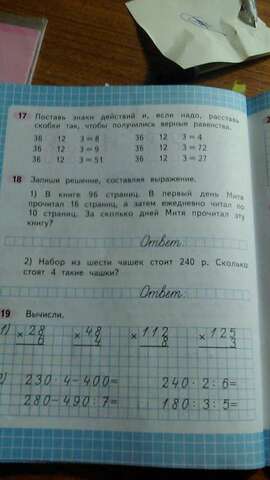 17 Поставь знаки действий и, если надо, расставь
скобки так, чтобы получились верные равенства.
36 12 3 = 8 36 12 3 = 4
36 12 3 = 9 36 12 3 = 72
36 12 3 = 51 36 12 3 = 27
18 Запиши решение, составляя выражение.
1) В книге 96 страниц. В первый день Митя
прочитал 16 страниц, а затем ежедневно читал по
10 страниц. За сколько дней Митя прочитал эту
книгу?
Ответ:
2) Набор из шести чашек стоит 240 р. Сколько
стоят 4 такие чашки?
Ответ:
19 Вычисли.
1) × 28 × 48 × 112 × 125
6 4 8 3
2) 230·4-400= 240:2:6=
280-490:7= 180:3:5=